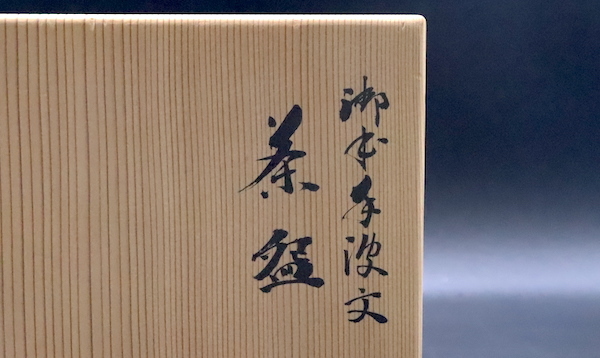 御本手波文
茶盌